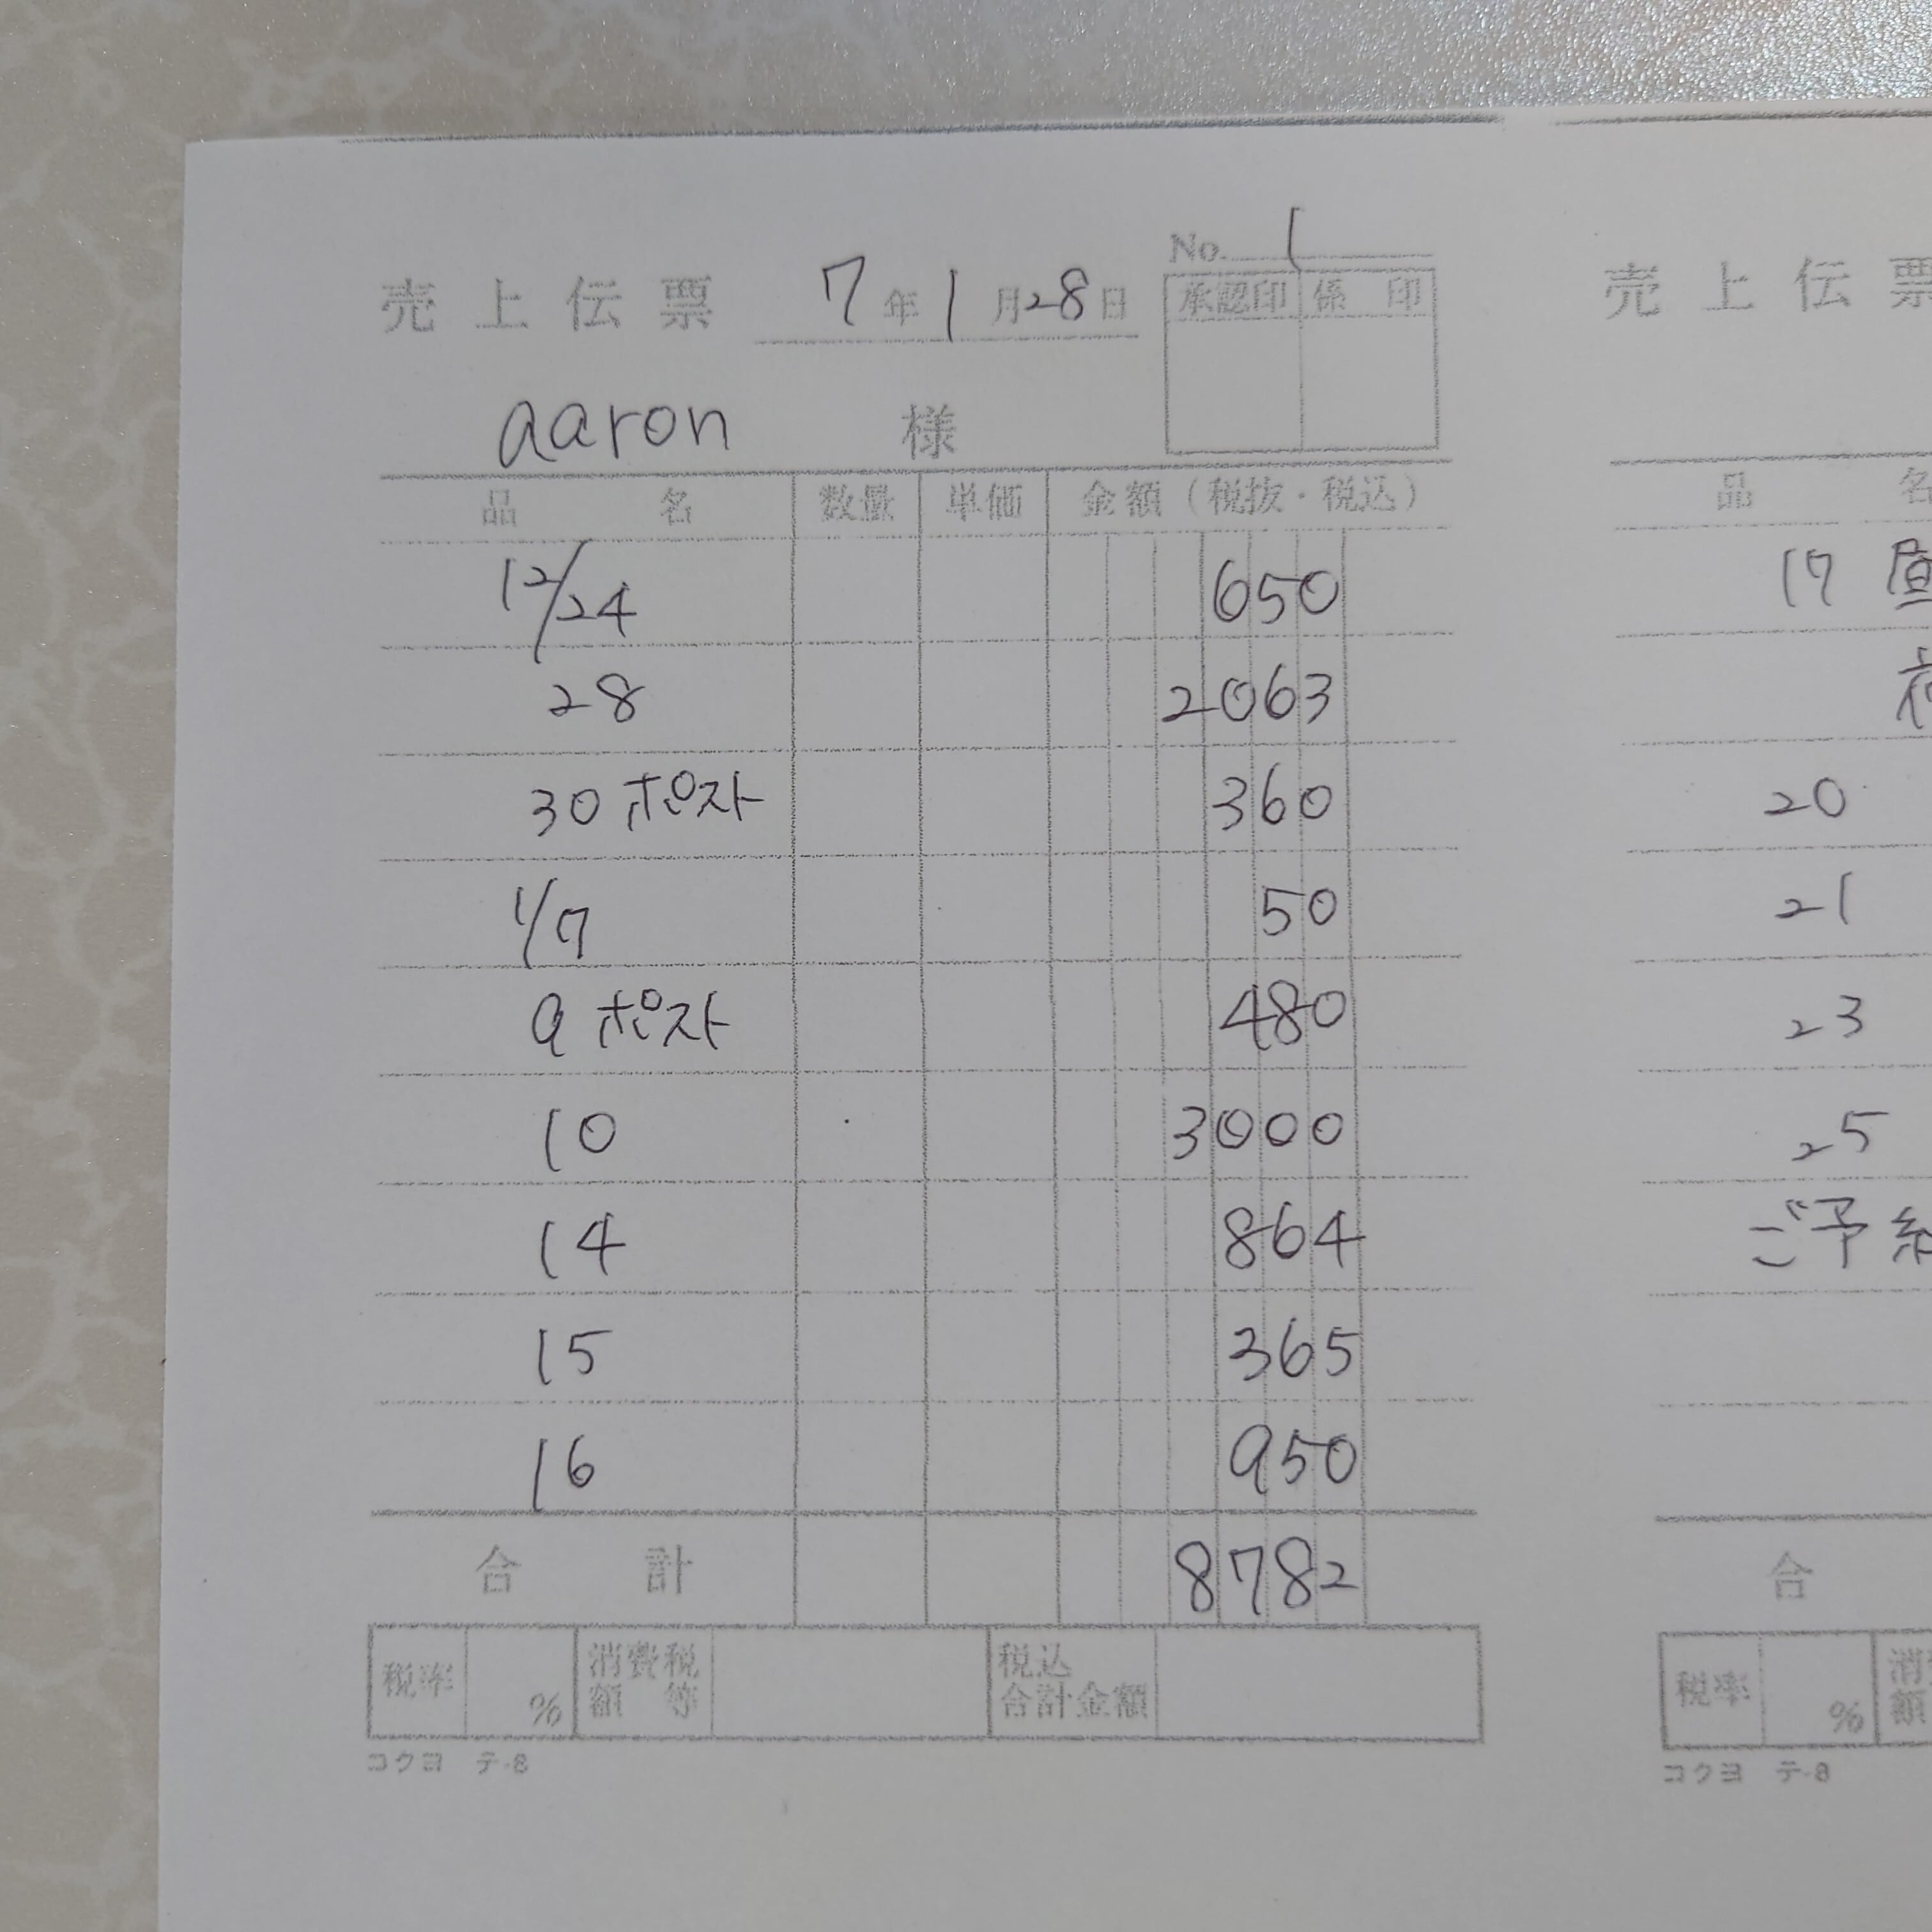 売上伝票 7年1月28日
No. 1
承認印 係印
aaron 様
品名 数量 単価 金額（税抜・税込）
12/24 650
28 2063
30 ポスト 360
1/7 50
9 ポスト 480
10 3000
14 864
15 365
16 950
合計 8782
税率 % 消費税額等 税込合計金額
コクヨ テ-8
売上伝票
品名
17
20
21
23
25
ご予
合
税率 %
コクヨ テ-8